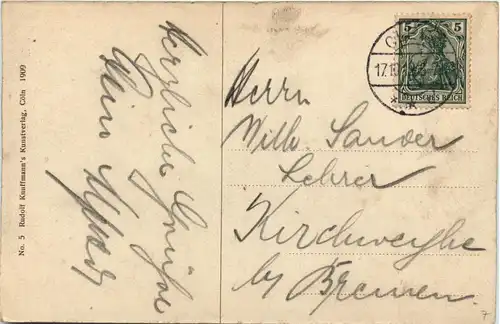 No. 5 Rudolf Knuffmann's Kunstverlag, Cöln 1909
Herzliche Grüße
Dein
5
DEUTSCHES REICH
17.10
Herrn
Willi Sander
Lehrer
Kirchweyhe
by Bremen.
7